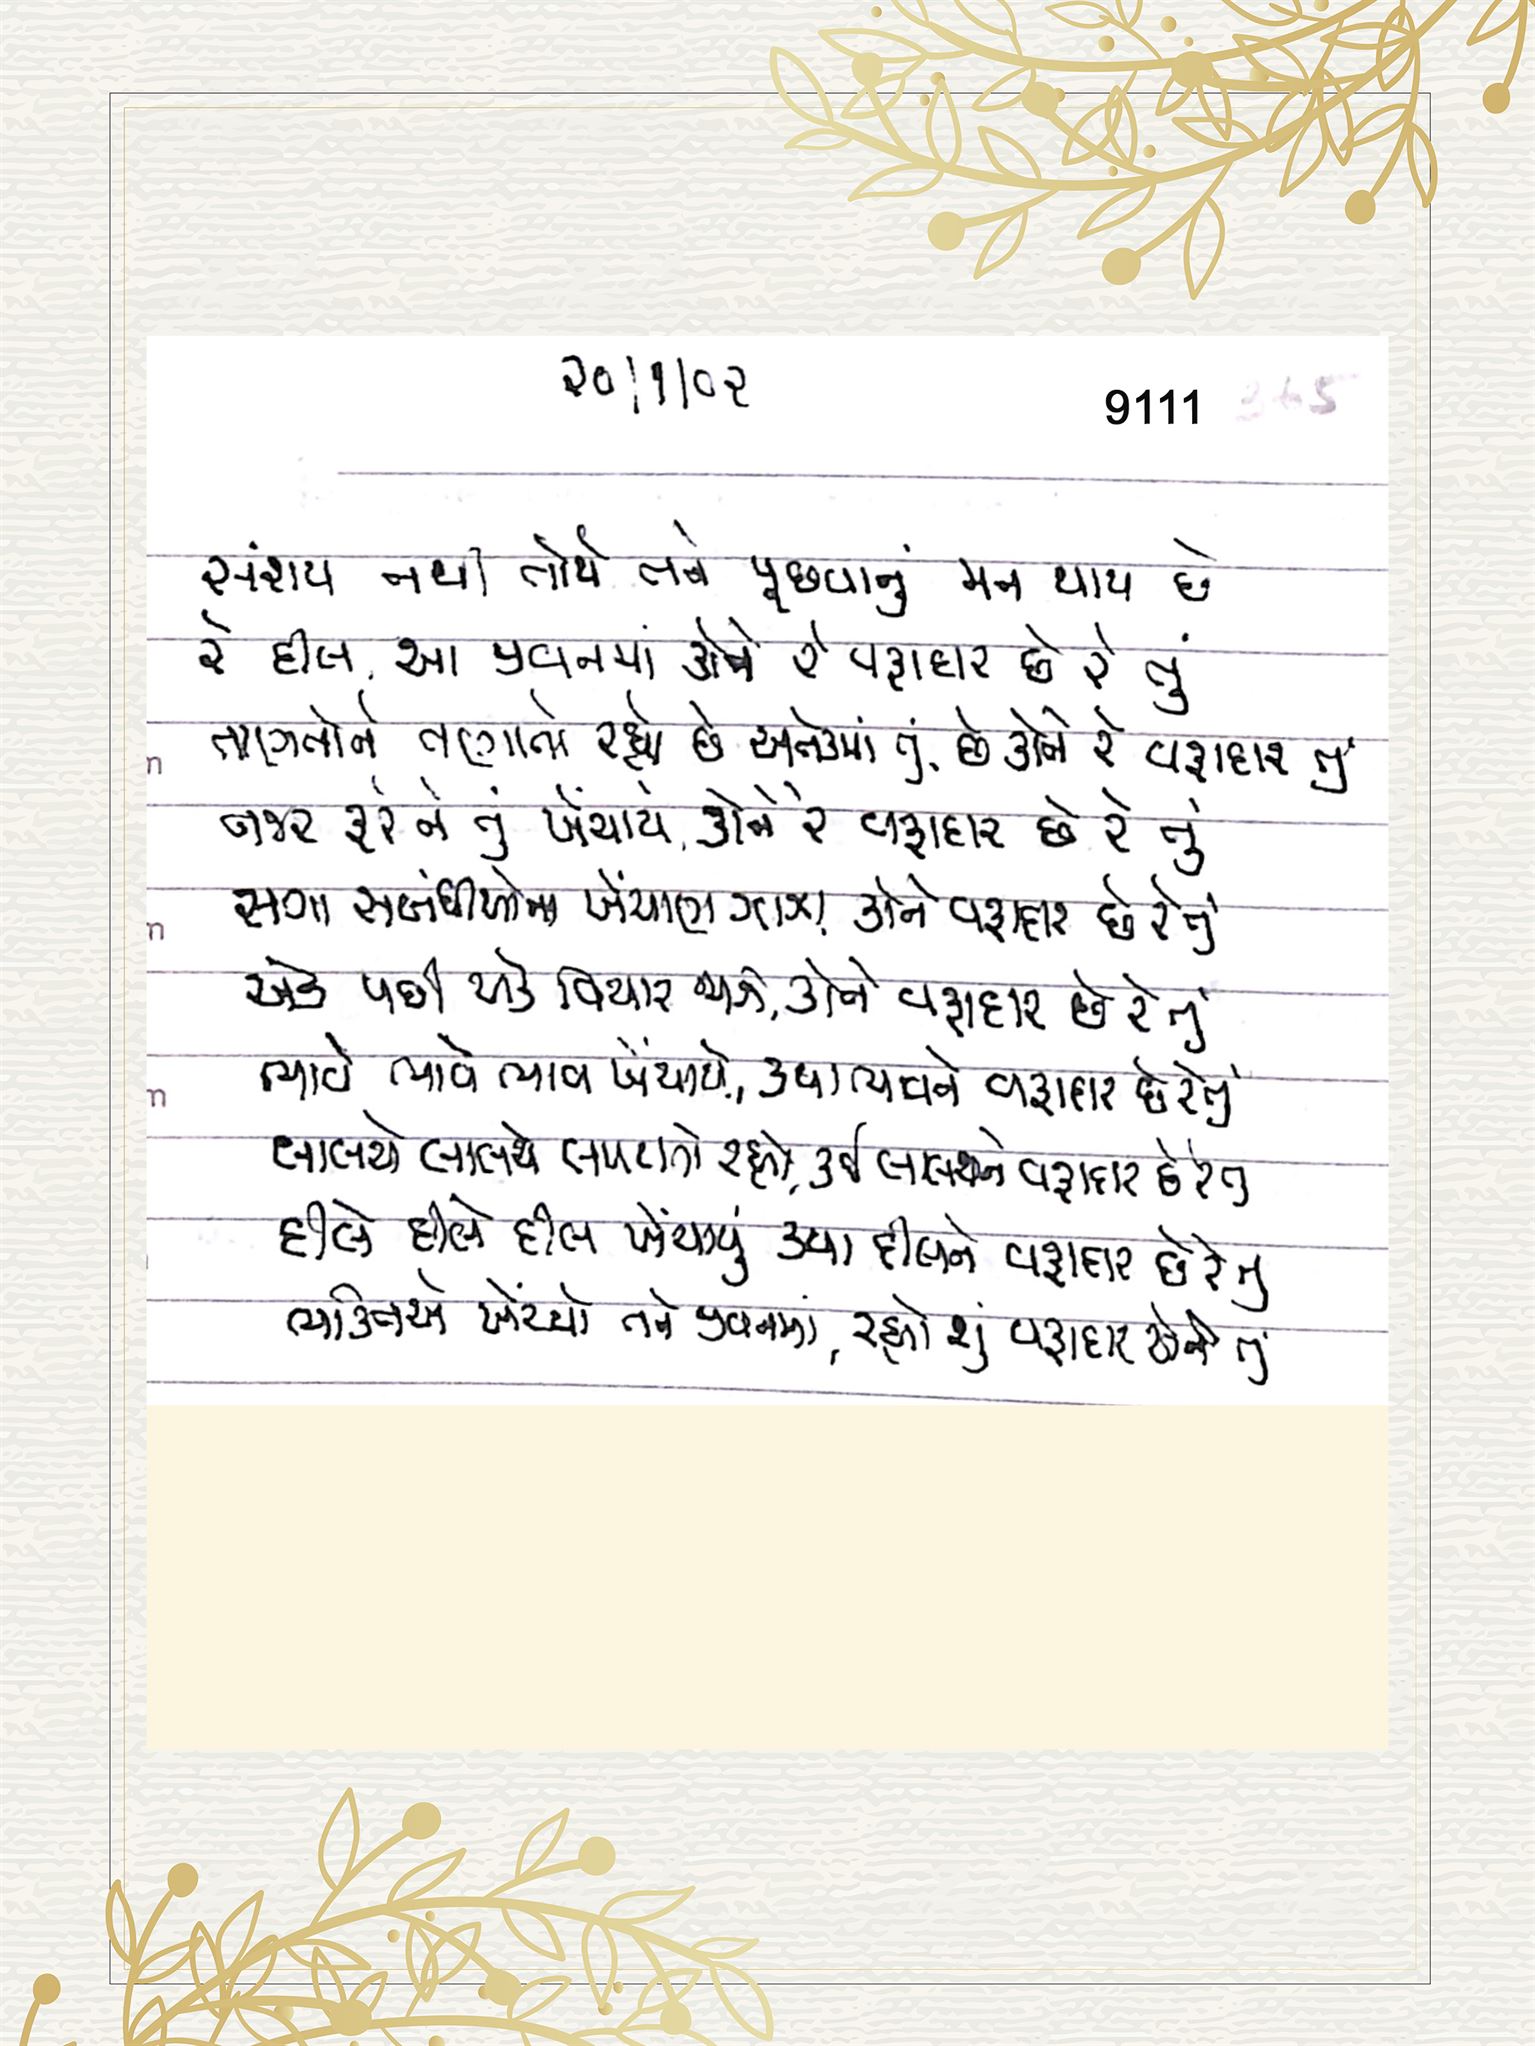 ૨૦/૧/૦૨
9111
સંશય નથી તોયે તને પૂછવાનું મન થાય છે
રે દીલ, આ જીવનમાં કોને રે વફાદાર છે રે તું
તણાતો રહ્યો છે અનેકમાં તું, છે કોને રે વફાદાર તું
નજર ફરે ને તું ખેંચાયે, કોને રે વફાદાર છે રે તું
સગા સબંધીઓના ખેંચાણ જાગ્યા, કોને વફાદાર છે રે તું
એક પછી એક વિચાર જાગે, કોને વફાદાર છે રે તું
ભાવે ભાવે ભાવ ખેંચાયે, કયા ભાવને વફાદાર છે રે તું
લાલચે લાલચે લપટાતો રહ્યો, કઈ લાલચને વફાદાર છે રે તું
દીલે દીલે દીલ ખેંચાયું કયા દીલને વફાદાર છે રે તું
ભક્તિએ ખેંચ્યો તને જીવનમાં, રહ્યો શું વફાદાર એને તું